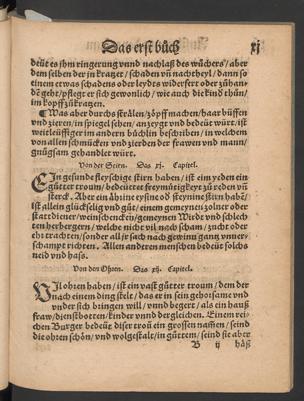 Das erst büch
xj
deüt es ihn ringerung vnnd nachlaß des wüchers/ aber
dem selben der in kratzet/ schaden vñ nachtheyl/ dann so
einem etwas schadens oder leyds widerfert oder zühan-
de gehet/ pflegt er sich gewonlich/ wie auch die kind thün/
im kopff zükratzen.
¶ Was aber durch strälen/ zöpff machen/ haar büffen
vnd zieren/ in spiegel sehen/ anzeygt vnd bedeüt würt/ ist
weitleüffiger im andern büchlin beschriben/ in welchem
von allen schmucken vnd zierden der frawen vnd mann
gnügsam gehandelt würt.
Von der Stirn. Das xj. Capitel.
EIn gesunde fleyschige stirn haben/ ist ein yeden ein
gütter troum/ bedeüttet freymütigkeyt zü reden vñ
sterck. Aber ein ährine eysine oð steynine stirn habē/
ist allein glückselig vnd güt/ einem gemeynen zolner oder
statt diener/ weinschencken/ gemeynen Wirdt vnd schlech-
ten herbergern/ welche nicht vil nach scham/ zucht oder
ehr trachten/ sonder allein sich nach gewinn gantz vnuer-
schampt richten. Allen anderen menschen bedeüt solchs
neid vnd haß.
Von den Ohren. Das xij. Capitel.
VIl ohren haben/ ist ein vast gütter troum/ dem der
nach einem ding stelt/ das er in sein gehorsame vnd
vnder sich bringen will/ vnnd begert/ als ein hauß
fraw/ dienstbotten/ kinder vnnd dergleichen. Einem rei-
chen Burger bedeüt diser troū ein grossen nammen/ seind
die ohren schön/ vnd wolgestalt/ in güttem/ seind sie aber
B ij
häß